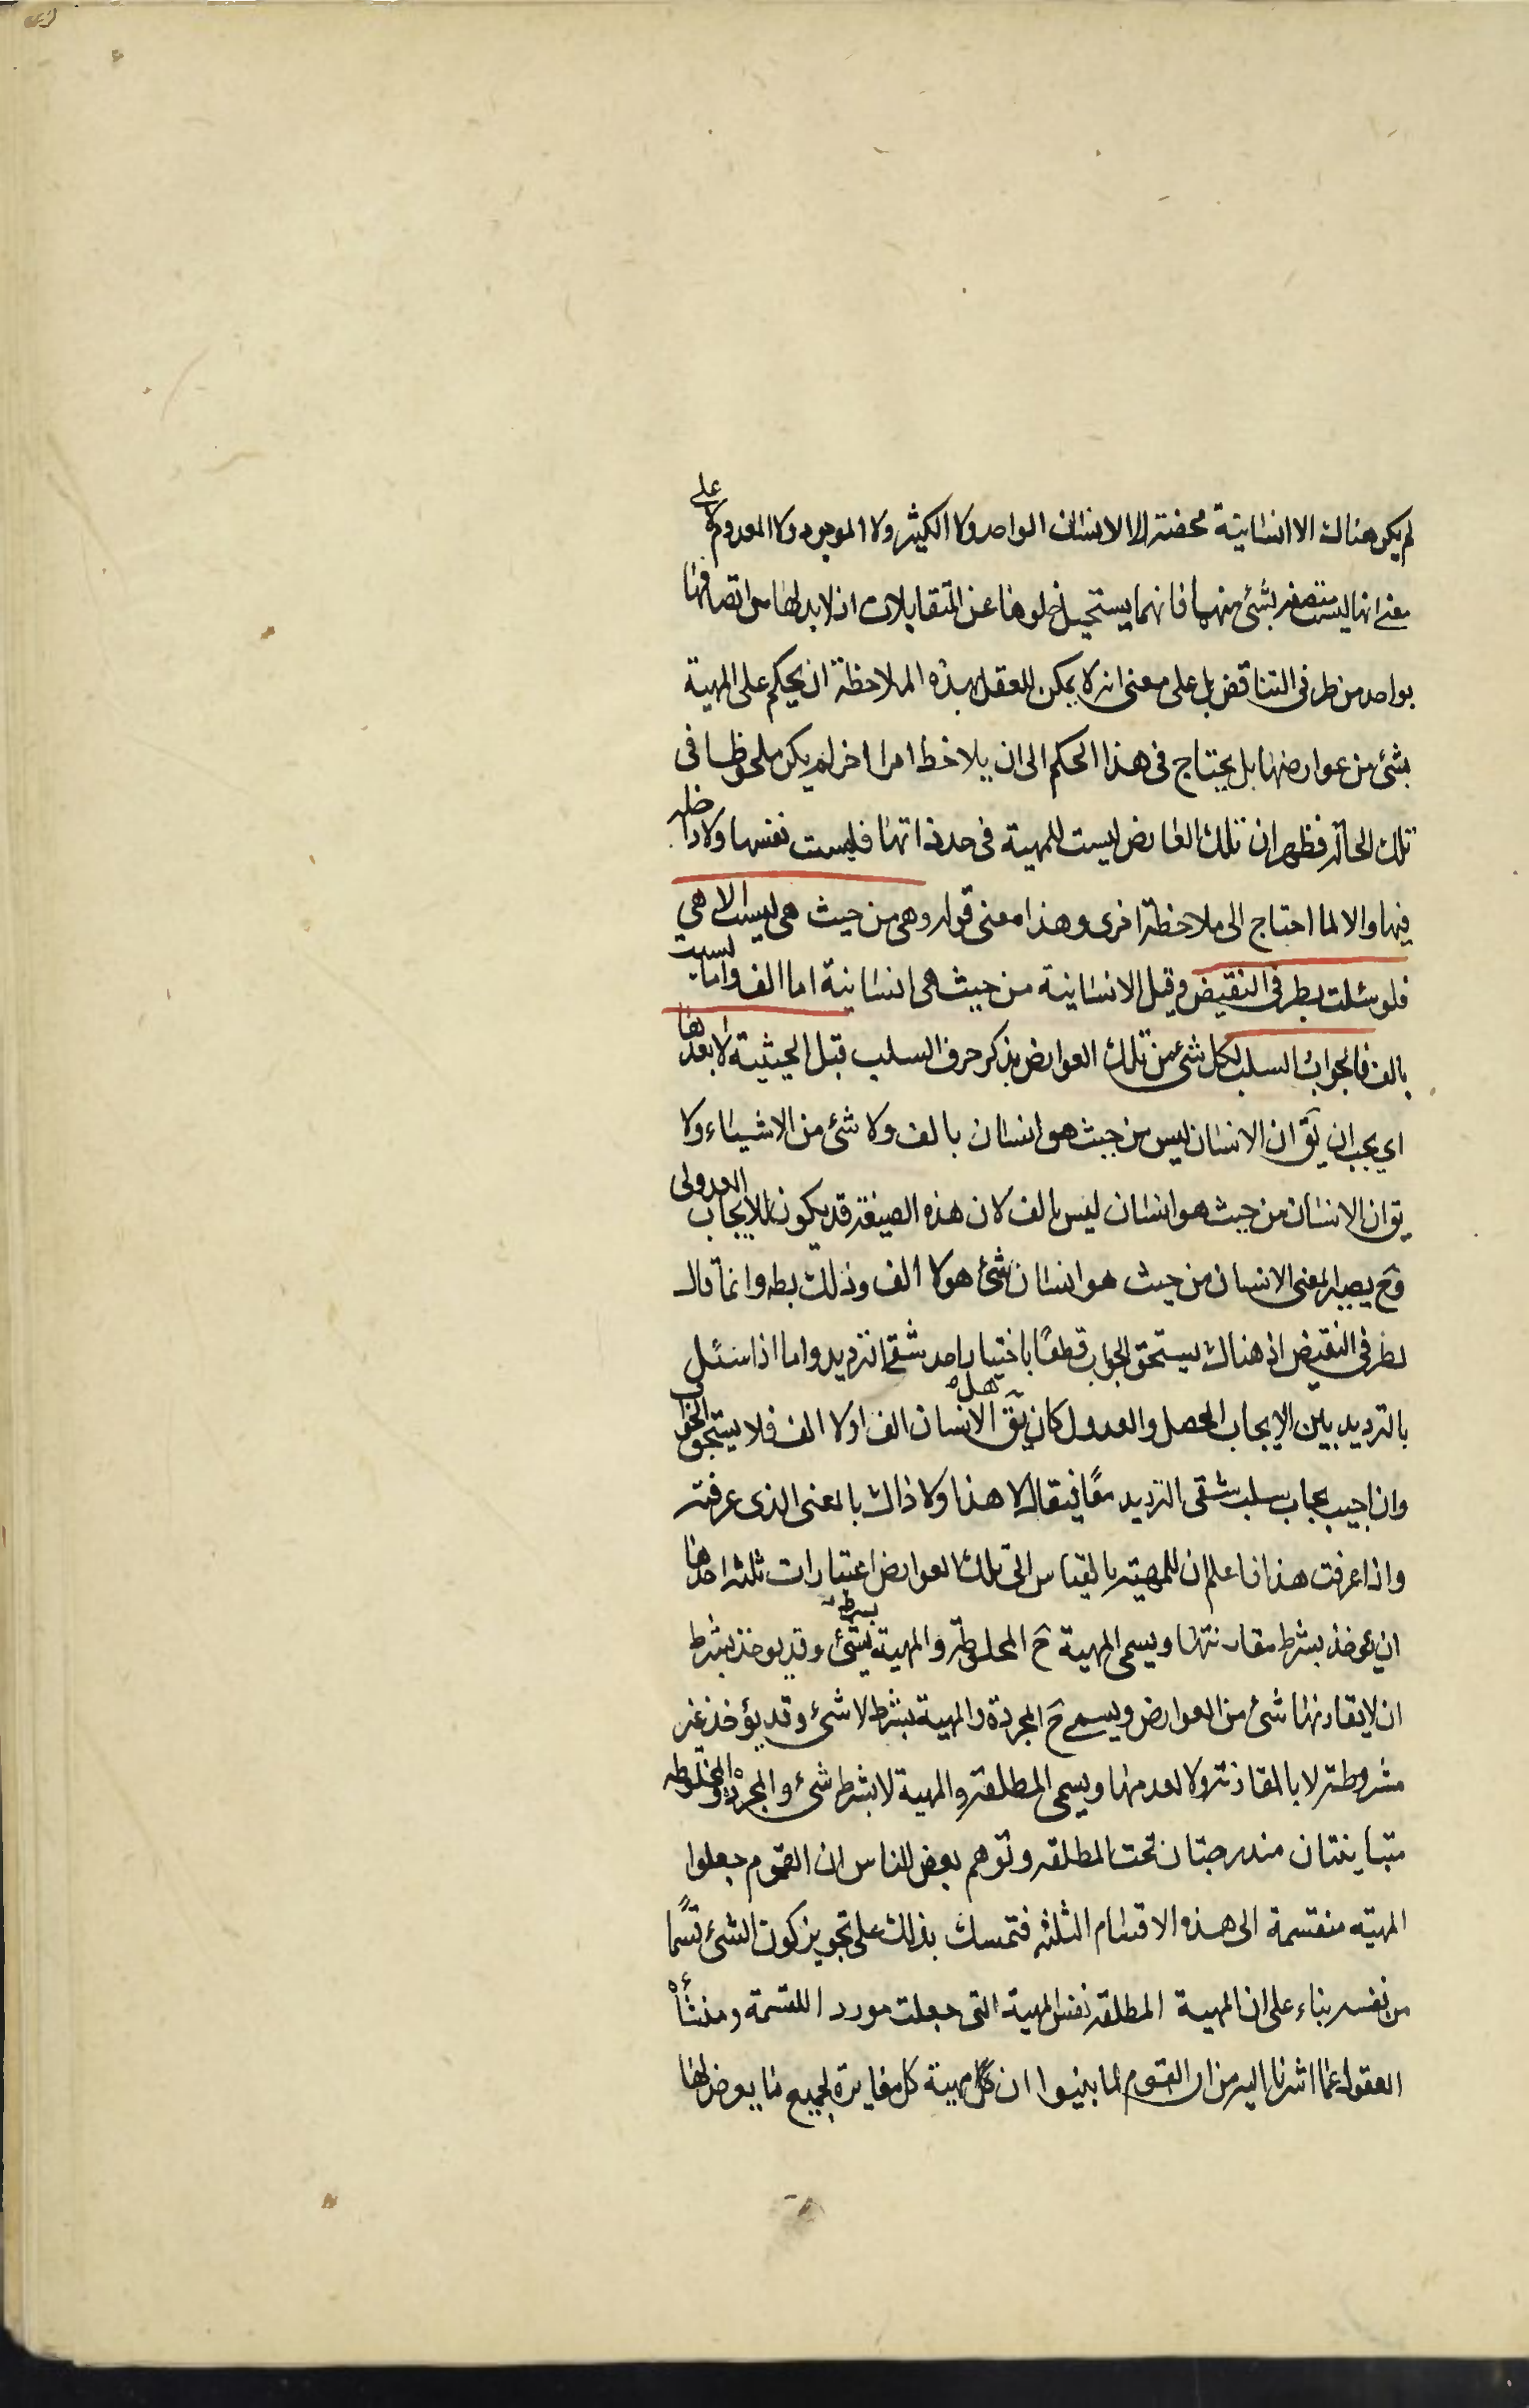 لم يكن هناك الا انسانية محضة لا الانسان الواحد ولا الكثير ولا الموجود ولا المعدوم لا على
معنى انها ليست متصفة بشئ منهما فانهما يستحيل خلوها عن المتقابلات اذ لا بد لها من اتصافها
بواحد من طرفى التناقض بل على معنى انه لا يمكن للعقل بهذه الملاحظة ان يحكم على المهية
بشئ من عوارضها بل يحتاج فى هذا الحكم الى ان يلاحظ امرا اخر لم يكن ملحوظا فى
تلك الحالة فظهر ان تلك العارض ليست للمهية فى حد ذاتها فليست نفسها ولا داخله
فيها والا لما احتاج الى ملاحظة اخرى وهذا معنى قوله وهى من حيث هى ليست الا هى
فلو سئلت بطرفى النقيض وقيل الانسانية من حيث هى انسانية اما الف واما ليست
بالف فالجواب السلب لكل شئ من تلك العوارض بذكر حرف السلب قبل الحيثية لا بعدها
اى يجب ان يق ان الانسان ليس من حيث هو انسان بالف ولا شئ من الاشياء ولا
يق ان الانسان من حيث هو انسان ليس بالف لان هذه الصيغة قد يكون للايجاب العدولى
وح يصير المعنى الانسان من حيث هو انسان شئ هو لا الف وذلك بط وانما قال
بطرفى النقيض اذ هناك يستحق الجواب قطعًا باختيار احد شقى الترديد واما اذا سئل
بالترديد بين الايجاب المحصل والعدول كان يق هل الانسان الف او لا الف فلا يستحق الجواب
وان اجيب يجاب بسلب شقى الترديد معًا فيقال لا هذا ولا ذاك بالمعنى الذى عرفته
واذا عرفت هذا فاعلم ان للمهية بالقياس الى تلك العوارض اعتبارات ثلثة احدها
ان يوخذ بشرط مقارنتها ويسمى المهية ح المخلوطة والمهية بشرط شئ وقد يوخذ بشرط
ان لا يقارنها شئ من العوارض ويسمى ح المجردة والمهية بشرط لا شئ وقد يؤخذ غير
مشروطة لا بالمقارنة ولا بعدمها ويسمى المطلقة والمهية لا بشرط شئ والمجردة والمخلوطه
متباينتان مندرجتان تحت المطلقه وتوهم بعض الناس ان القوم جعلوا
المهية منقسمة الى هذه الاقسام الثلثه فتمسك بذلك على تجويز كون الشئ قسمًا
من نفسه بناء على ان المهية المطلقه نفس المهية التى جعلت موردا للقسمة ومنشأه
الغفول عما اشرنا اليه من ان القوم لما بينوا ان كل مهية كل مغايرة لجميع ما يعرض لها